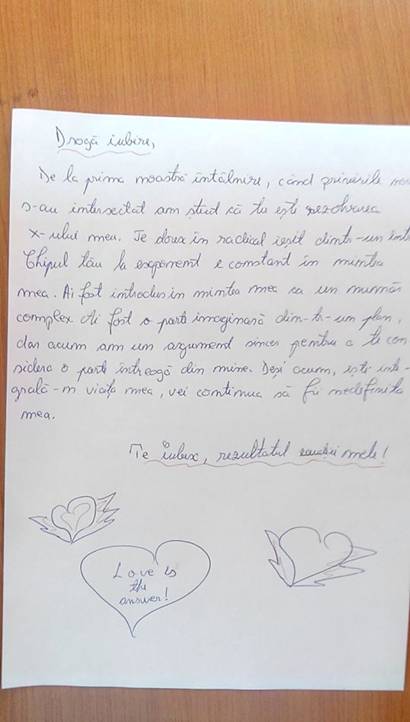 Dragă iubire,
De la prima noastră întâlnire, când privirile
s-au intersectat am știut că tu ești rezolvarea
x-ului meu. Te doux în radical ieșit dintr-un
Chipul tău la exponent e constant în mintea
mea. Ai fost introdus în mintea mea ca un număr
complex Ai fost o parte imaginară din-tr-un plan,
dar acum am un argument sincer pentru a te con-
sidera o parte întreagă din mine. Deși acum, ești inte-
grală-n viața mea, vei continua să fii nedefinita
mea.
Te iubex, rezultatul ecuației mele!
Love is
the
answer!